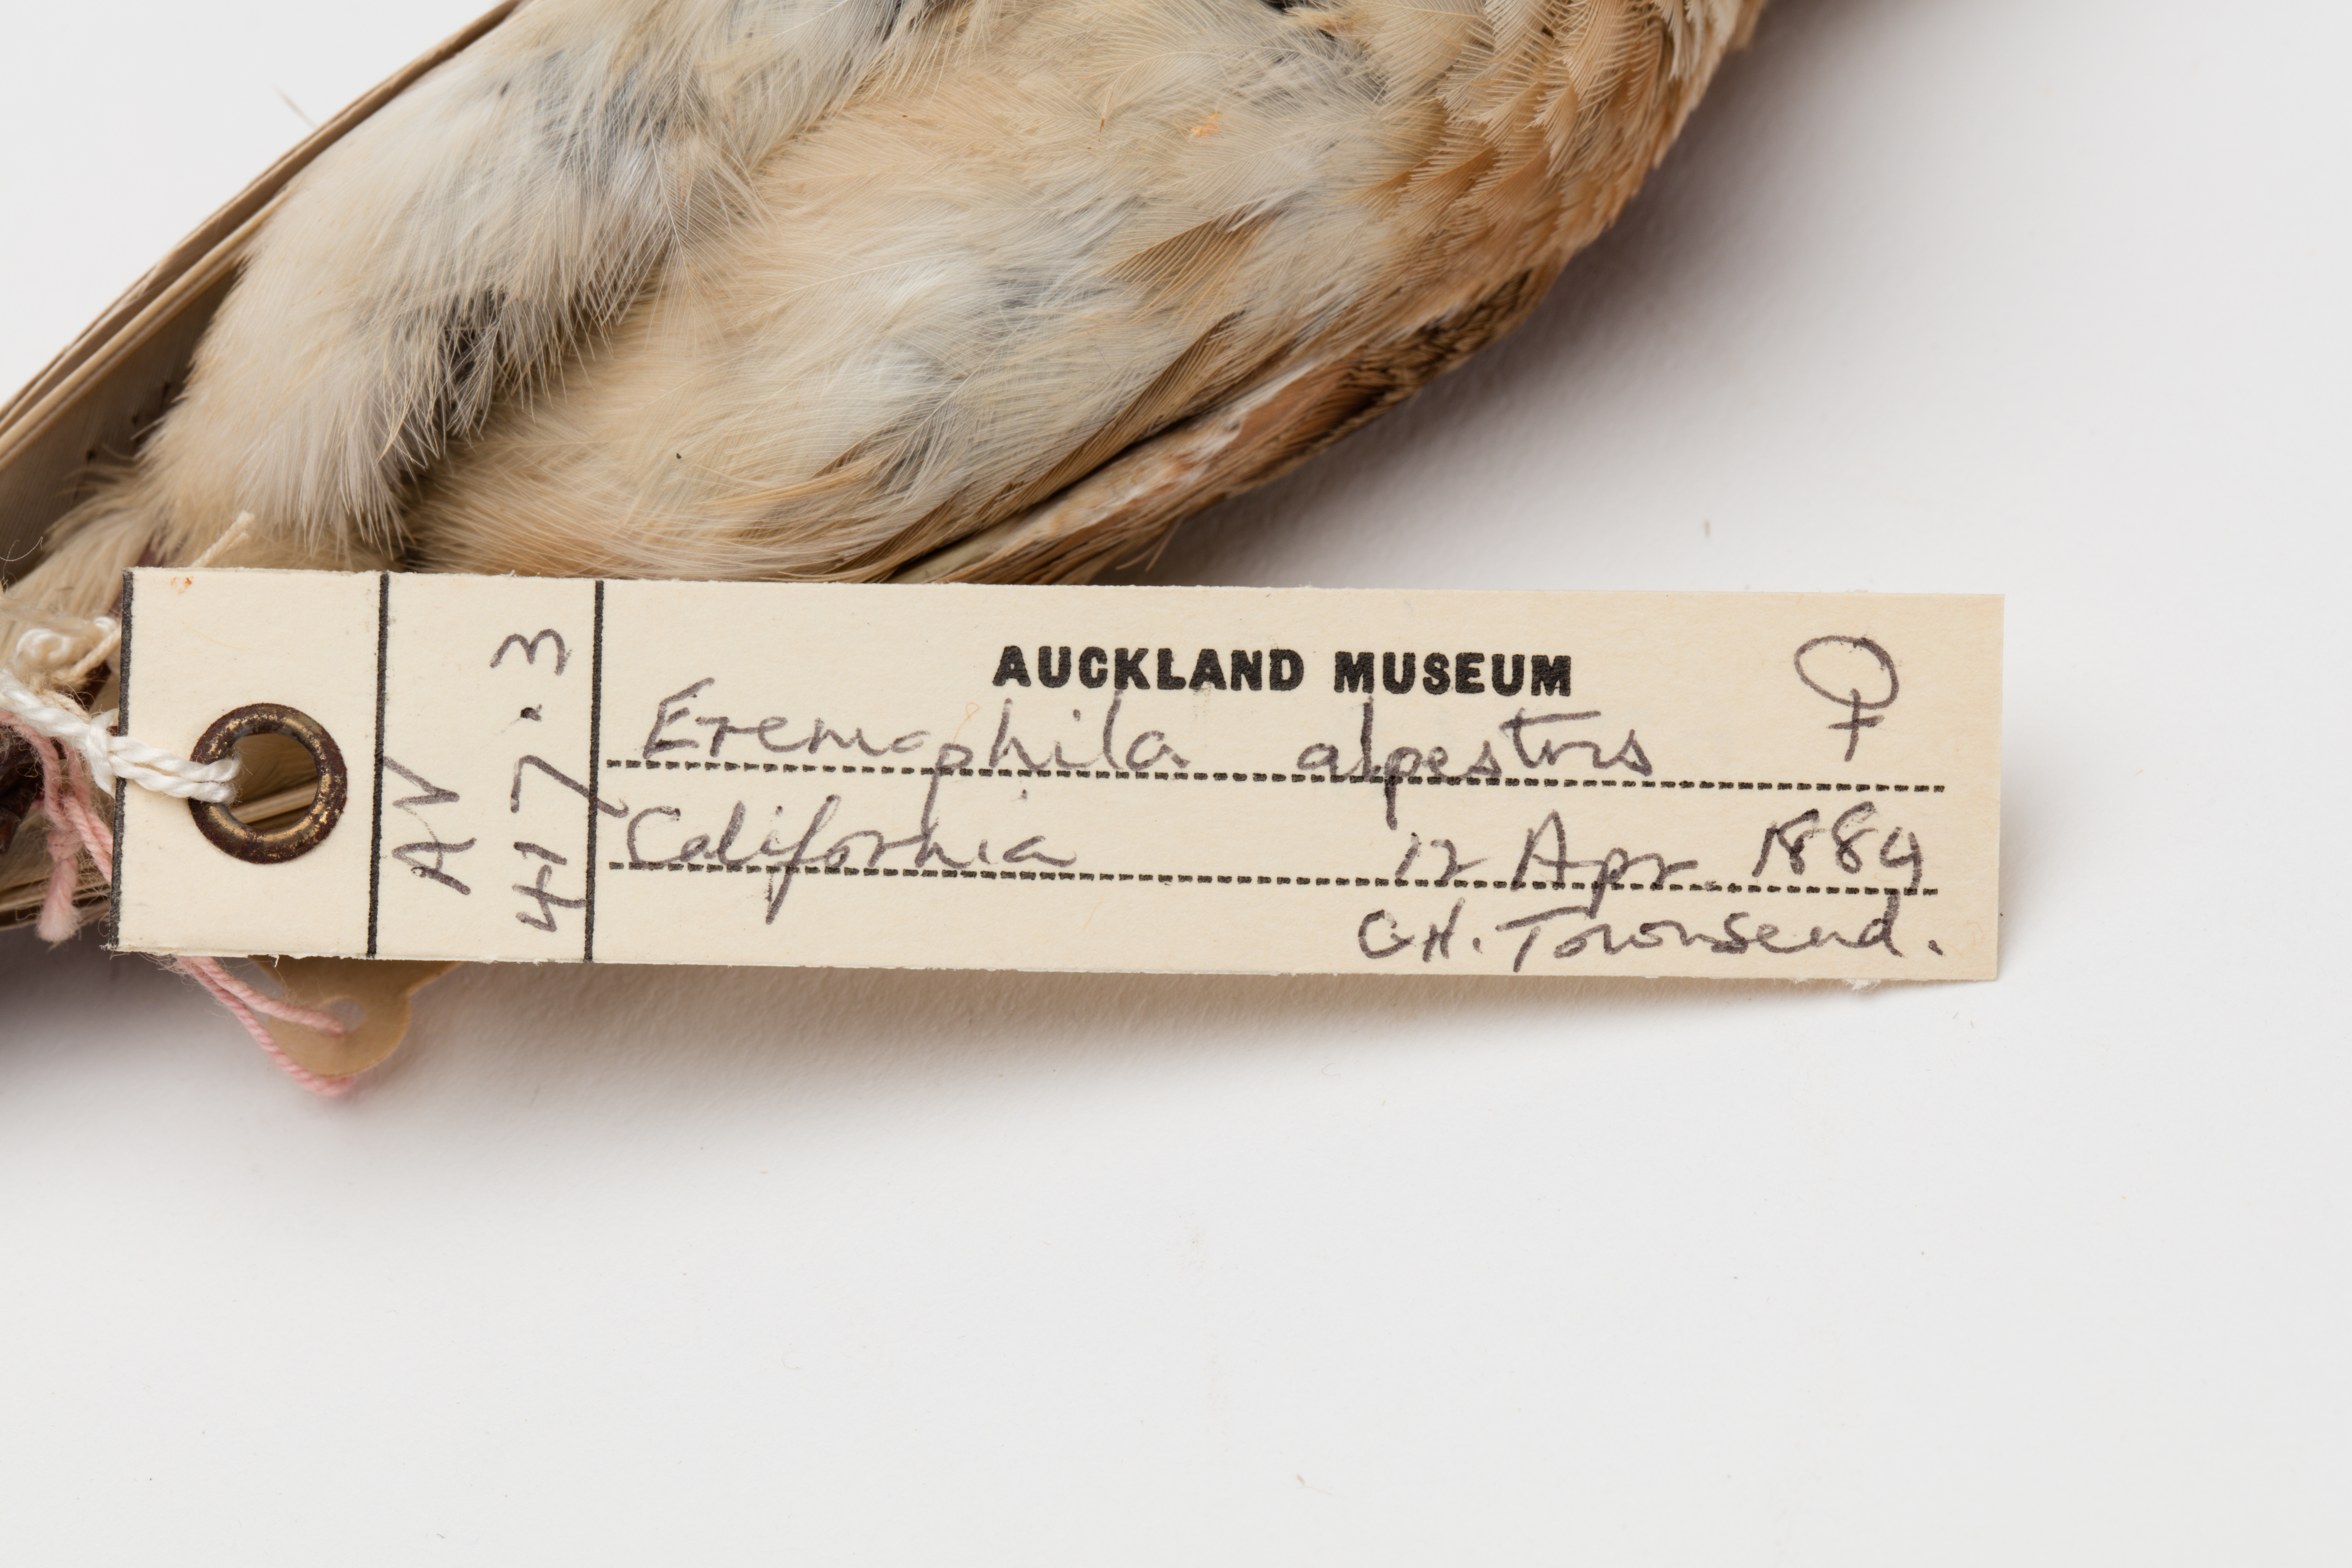 AV
417.3
AUCKLAND MUSEUM ♀
Eremophila alpestris
California 12 Apr. 1884
C.H. Townsend.